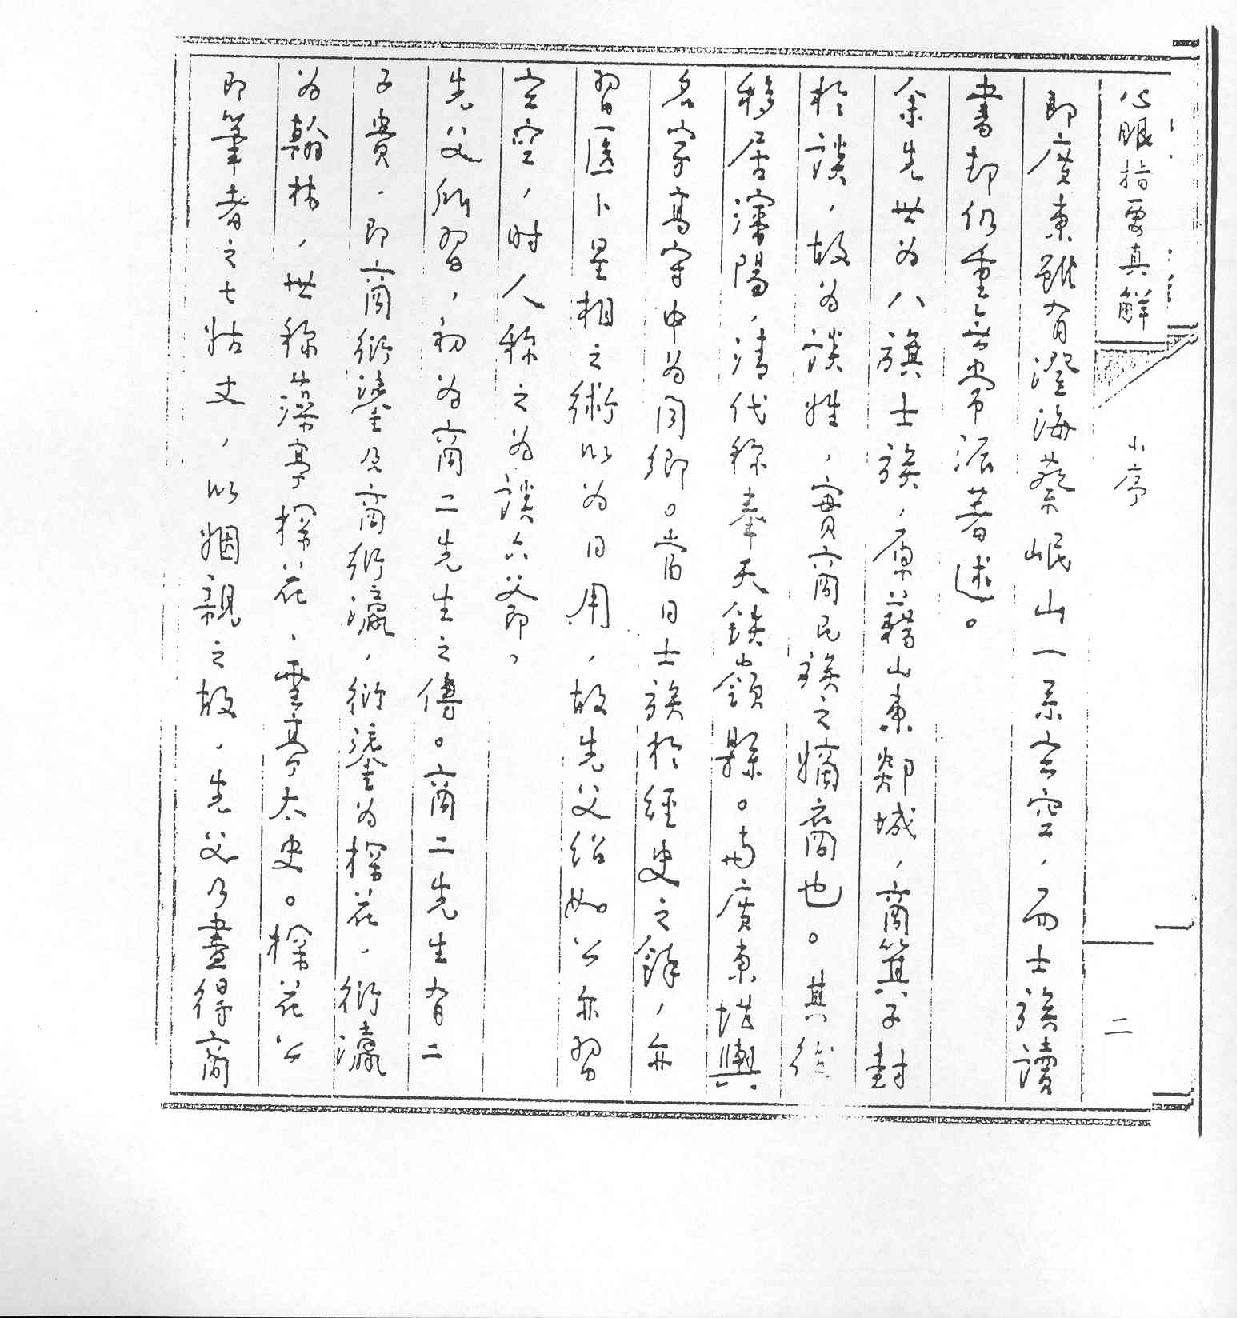 心眼指要真解
小序
二
即廣東雖有澄海蔡岷山一系玄空，而士族讀
書却仍重無常派著述。
余先世為八旗士族，原籍山東郯城，商箕子封
於談，故為談姓，實商民族之嫡裔也。其後
移居瀋陽，清代稱奉天鐵嶺縣。與廣東堪輿
名家高守中為同鄉。當日士族於經史之餘，亦
習医卜星相之術以為日用，故先父紹如公亦習
玄空，時人稱之為談六爺即，
先父所習，初為商二先生之傳。商二先生有二
子貴，即商衍鎏及商衍瀛，衍鎏為探花，衍瀛
為翰林，世称藻亭探花、雲亭太史。探花公
即筆者之七姑丈，以姻親之故，先父乃盡得商